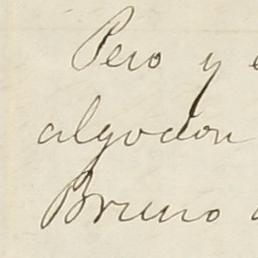 Pero y
algodon
Bruno